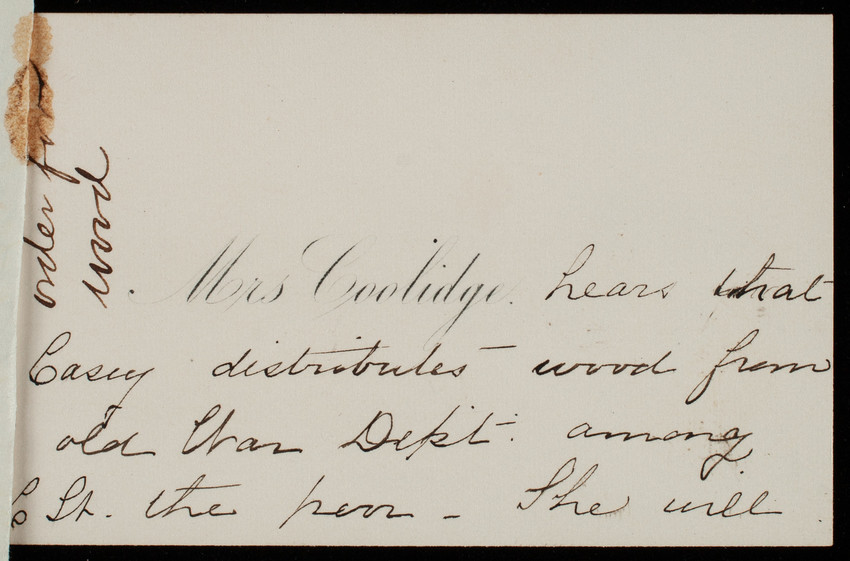 order for
wood
Mrs Coolidge. hears that
Casey distributes wood from
old War Dept. among
St. the poor - She will